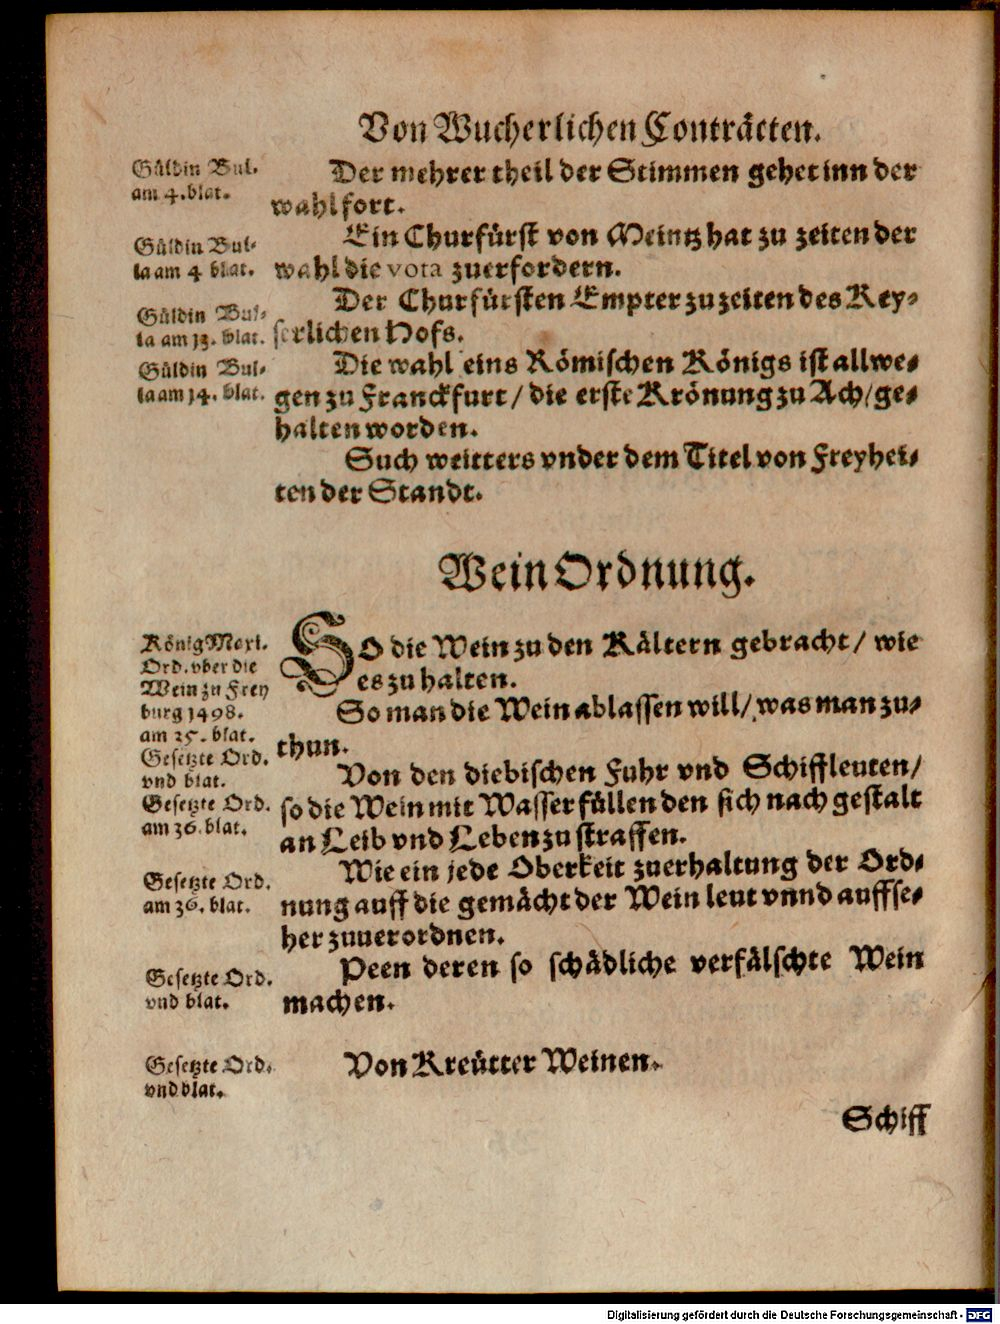 Von Wucherlichen Conträcten.
Güldin Bul.
am 4. blat.
Der mehrer theil der Stimmen gehet inn der
wahl fort.
Güldin Bul-
la am 4 blat.
Ein Churfürst von Meintz hat zu zeiten der
wahl die vota zuerfordern.
Güldin Bul-
la am 13. blat.
Der Churfürsten Empter zu zeiten des Key-
serlichen Hofs.
Güldin Bul-
la am 14. blat.
Die wahl eins Römischen Königs ist allwe-
gen zu Franckfurt / die erste Krönung zu Ach / ge-
halten worden.
Such weitters vnder dem Titel von Freyhei-
ten der Standt.
Wein Ordnung.
König Maxi.
Ord. vber die
Wein zu Frey
burg 1498.
am 25. blat.
SO die Wein zu den Kältern gebracht / wie
es zu halten.
So man die Wein ablassen will / was man zu-
thun.
Gesetzte Ord.
vnd blat.
Von den diebischen Fuhr vnd Schiffleuten /
so die Wein mit Wasser füllen den sich nach gestalt
an Leib vnd Leben zu straffen.
Gesetzte Ord.
am 36. blat.
Wie ein jede Oberkeit zuerhaltung der Ord-
nung auff die gemächt der Wein leut vnnd auffse-
her zuuerordnen.
Gesetzte Ord.
am 36. blat.
Peen deren so schädliche verfälschte Wein
machen.
Gesetzte Ord.
vnd blat.
Von Kreütter Weinen.
Gesetzte Ord.
vnd blat.
Schiff
Digitalisierung gefördert durch die Deutsche Forschungsgemeinschaft - DFG